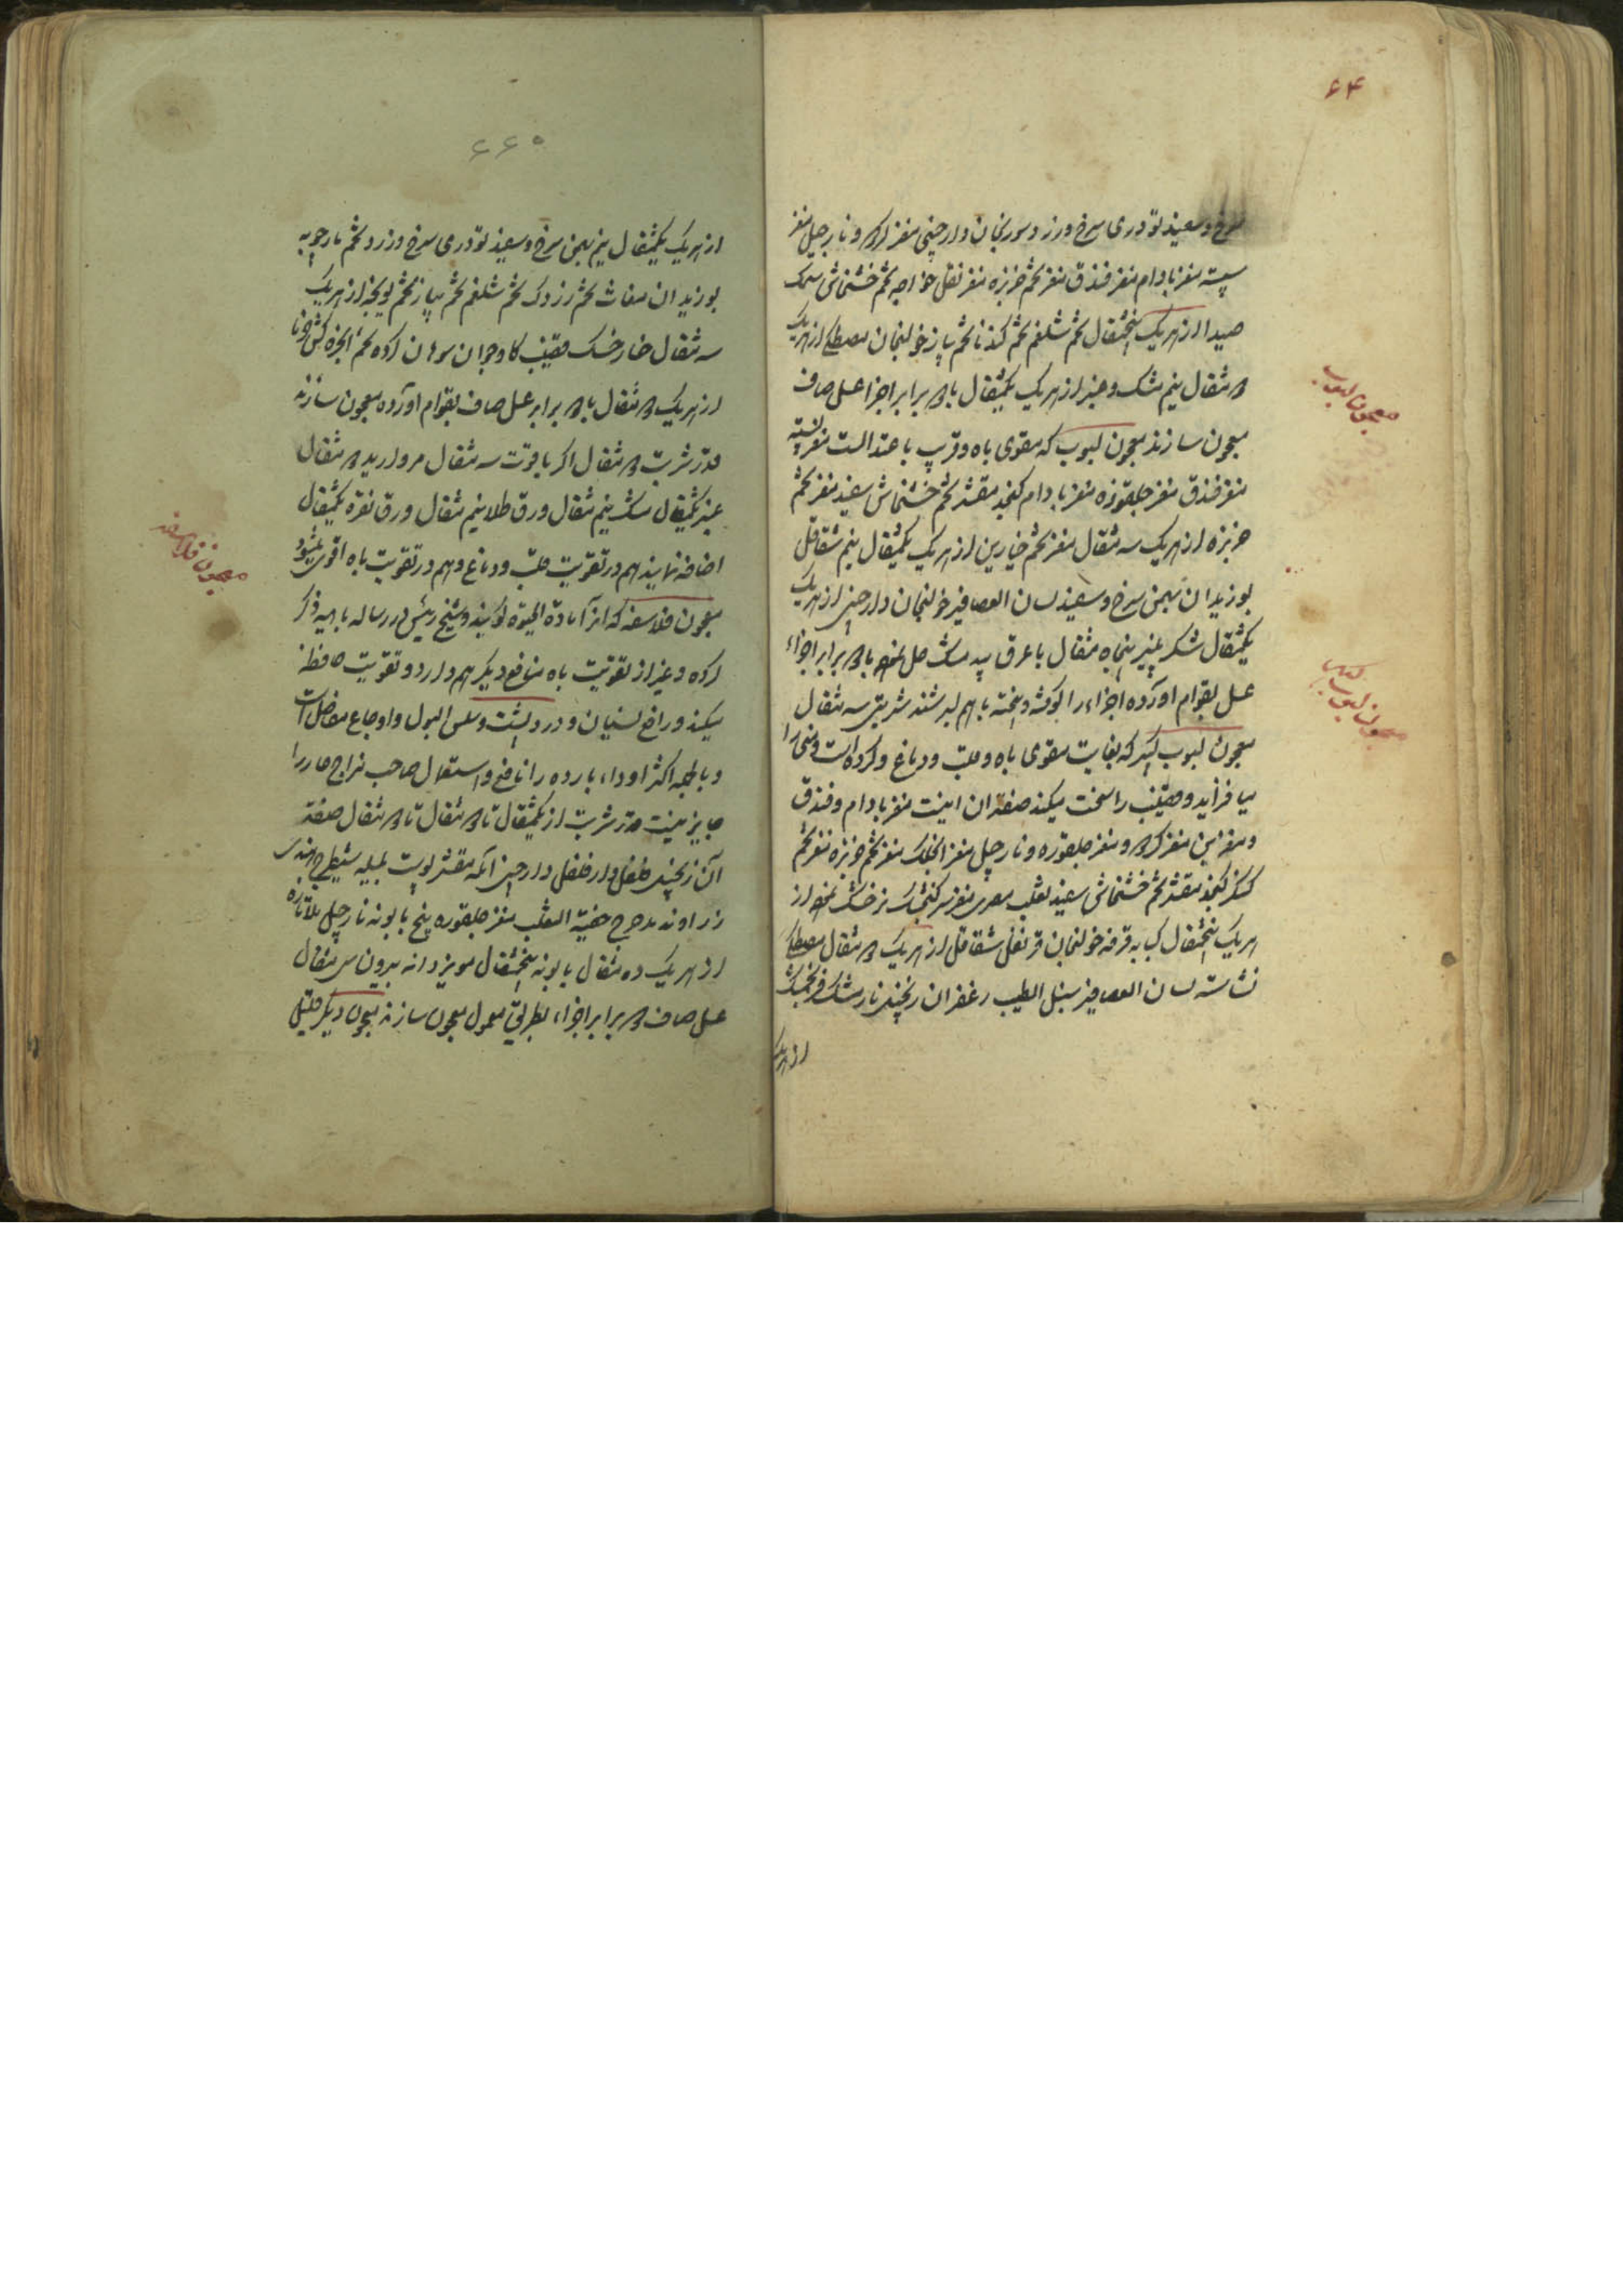 ۶۴
سرخ و سفید تودری سرخ و زرد و سورنجان دارچینی مغز گردو نارجیل مغز
پسته مغز بادام مغز فندق مغز تخم خربزه مغز نقل خواجه تخم خشخاش سمک
صیدا از هریک پنجمثقال تخم شلغم تخم گندنا تخم پیاز خولنجان مصطکی از هریک
دو مثقال نیم مشک و عنبر از هریک یکمثقال با دو برابر اجزا عسل صاف
معجون سازند معجون لبوب که مقوی باه و قریب با عتدالست مغز پسته
مغز فندق مغز جلغوزه مغز بادام کنجد مقشر تخم خشخاش سفید مغز تخم
خربزه از هریک سه مثقال مغز تخم خیارین از هریک یکمثقال نیم شقاقل
بوزیدان بهمن سرخ و سفید لسان العصافیر خولنجان دارچینی از هریک
یکمثقال شکر پنیر پنجاه مثقال با عرق بید مشک حل نموده با دو برابر اجزاء
عسل بقوام آورده اجزاء را کوفته و بیخته با هم بسرشند شربتی سه مثقال
معجون لبوب کبیر که بغایت مقوی باه و قلب و دماغ و گرده است و منی را
میافزاید و قضیب را سخت میکند صفت آن اینست مغز بادام و فندق
و مغز بن مغز گردو مغز جلغوزه و نارجیل مغز انخلک مغز تخم خربزه مغز تخم
کنجد مقشر تخم خشخاش سفید ثعلب مصری مغز سر گنجشک نر خشک نموده از
هریک پنجمثقال کبابه قرفه خولنجان قرنفل شقاقل از هریک دو مثقال مصطکی
نشاسته لسان العصافیر سنبل الطیب زعفران زنجبیل نارمشک فرنجمشک
از هریک
معجون لبوب
معجون لبوب کبیر
۶۶۰
از هریک یکمثقال نیم بهمن سرخ و سفید تودری سرخ و زرد تخم مارچوبه
بوزیدان مغاث تخم زردک تخم شلغم تخم پیاز تخم یونجه از هریک
سه مثقال خارخسک قضیب گاو جوان سوهان کرده تخم انجره کش خرما
از هریک دو مثقال با دو برابر عسل صاف بقوام آورده معجون سازند
قدر شربت دو مثقال اگر یاقوت سه مثقال مروارید دو مثقال
عنبر یکمثقال مشک نیم مثقال ورق طلا نیم مثقال ورق نقره یکمثقال
اضافه نمایند هم در تقویت قلب و دماغ و هم در تقویت باه اقوی میشود
معجون فلاسفه که انرا مادة الحیوة گویند و شیخ رئیس در رساله باهیه ذکر
کرده و غیر از تقویت باه منافع دیگر هم دارد و تقویت حافظه
میکند و رافع نسیان و درد پشت و سلس البول و اوجاع مفاصل است
و بالجمله اکثر اوداء بارده را نافع و استعمال صاحب مزاج حار را
جایز نیست قدر شربت از یکمثقال تا دو مثقال تا دو مثقال صفت
آن زنجبیل فلفل دارفلفل دارچین آمله مقشر پوست بلیله شیطرج هندی
زراوند مدحرج خصیة الثعلب مغز جلغوزه بیخ بابونه نارجیل تازه
از هریک ده مثقال بابونه پنجمثقال مویز دانه بیرون سی مثقال
عسل صاف دو برابر اجزاء بطریق معمول معجون سازند معجون دیگر
معجون فلاسفه